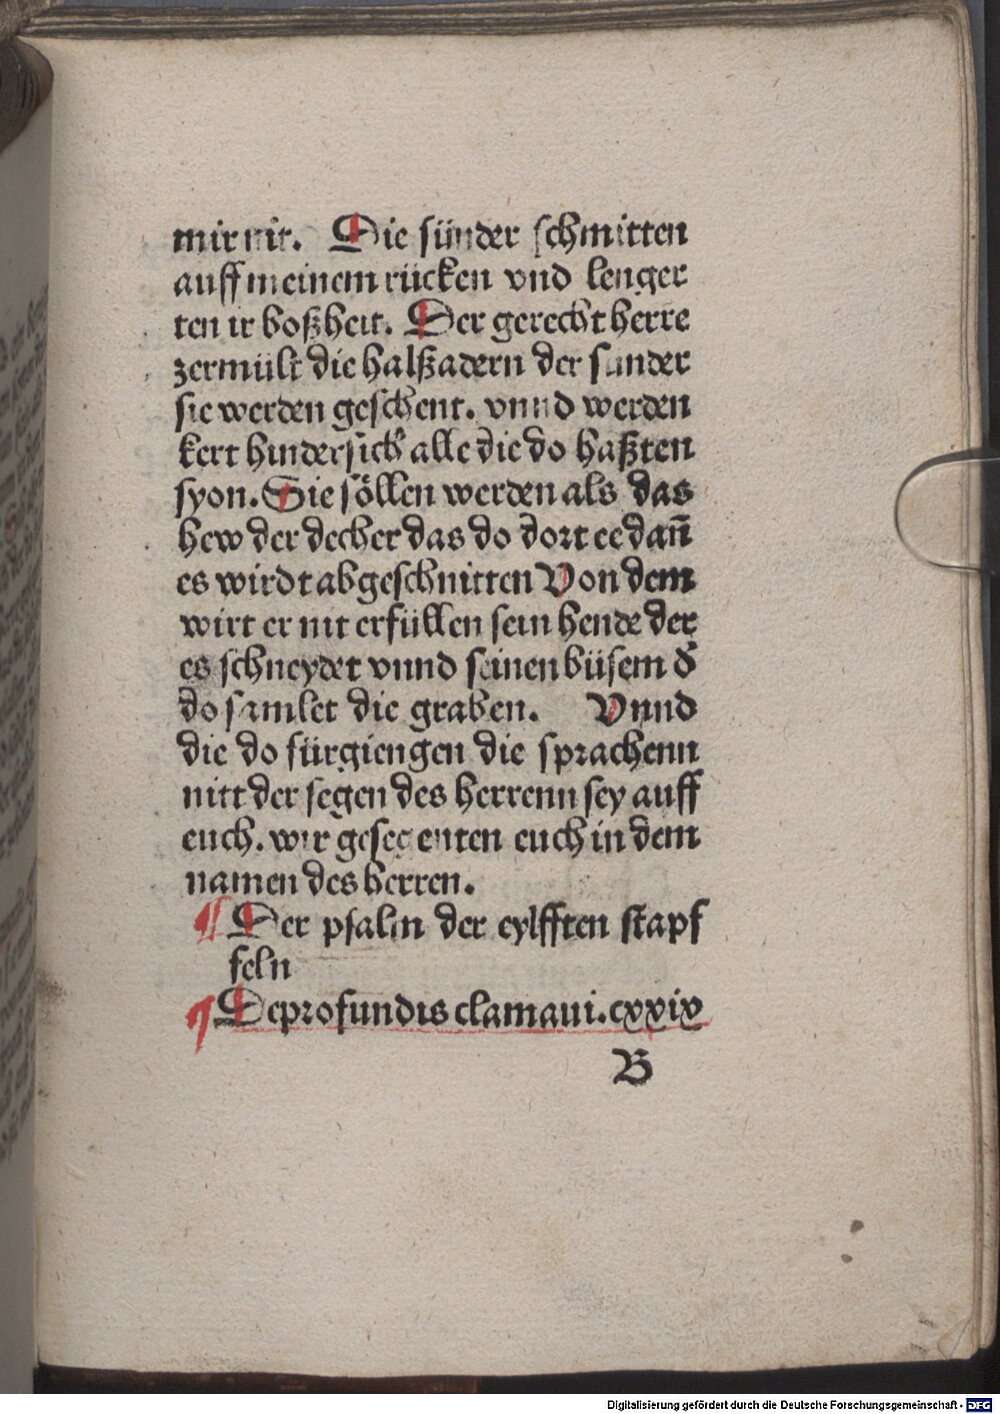 mir nit. Die sünder schmitten
auff meinem rücken vnd lenger
ten ir boßheit. Der gerecht herre
zermült die halßadern der sunder
sie werden geschent. vnnd werden
kert hindersich alle die do haßten
syon. Sie söllen werden als das
hew der decher das do dort ee dan̄
es wirdt abgeschnitten Von dem
wirt er nit erfüllen sein hende der
es schneydet vnnd seinen büsem d̕
do samlet die graben. Vnnd
die do fürgiengen die sprachenn
nitt der segen des herrenn sey auff
euch. wir gesegenten euch in dem
namen des herren.
¶ Der psalm der eylfften stapf
feln
¶ Deprofundis clamaui. cxxix
B
Digitalisierung gefördert durch die Deutsche Forschungsgemeinschaft - DFG